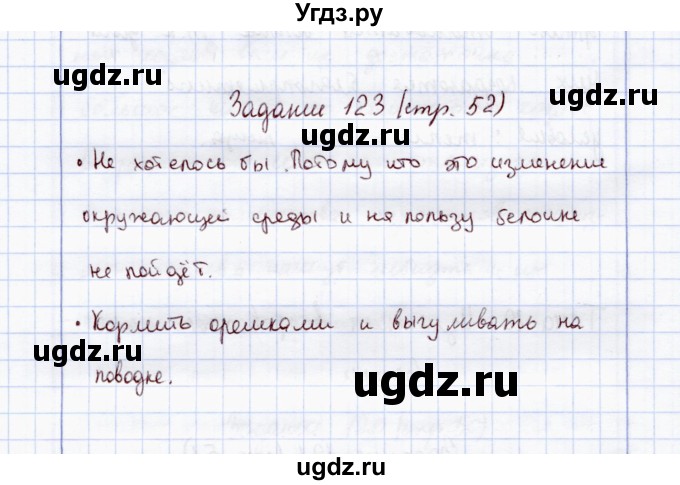 Угдз.ру
ugdz.ru ugdz.ru
Задание 123 (стр. 52)
• Не хотелось бы. Потому что это изменение
ugdz.ru
окружающей среды и на пользу белочке
не пойдёт.
• Кормить орешками и выгуливать на
ugdz.ru
поводке.
ugdz.ru
ugdz.ru